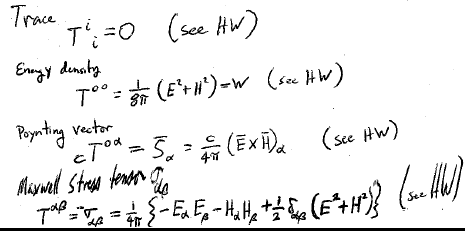 Trace
T^i_i = 0 (see HW)
Energy density
T^{00} = 1/8π (E² + H²) = W (see HW)
Poynting vector
cT^{0α} = S̄_α = c/4π (Ē × H̄)_α (see HW)
Maxwell Stress tensor σ_{αβ}
T^{αβ} = -σ_{αβ} = 1/4π {-E_α E_β - H_α H_β + 1/2 δ_{αβ} (E² + H²)} (see HW)